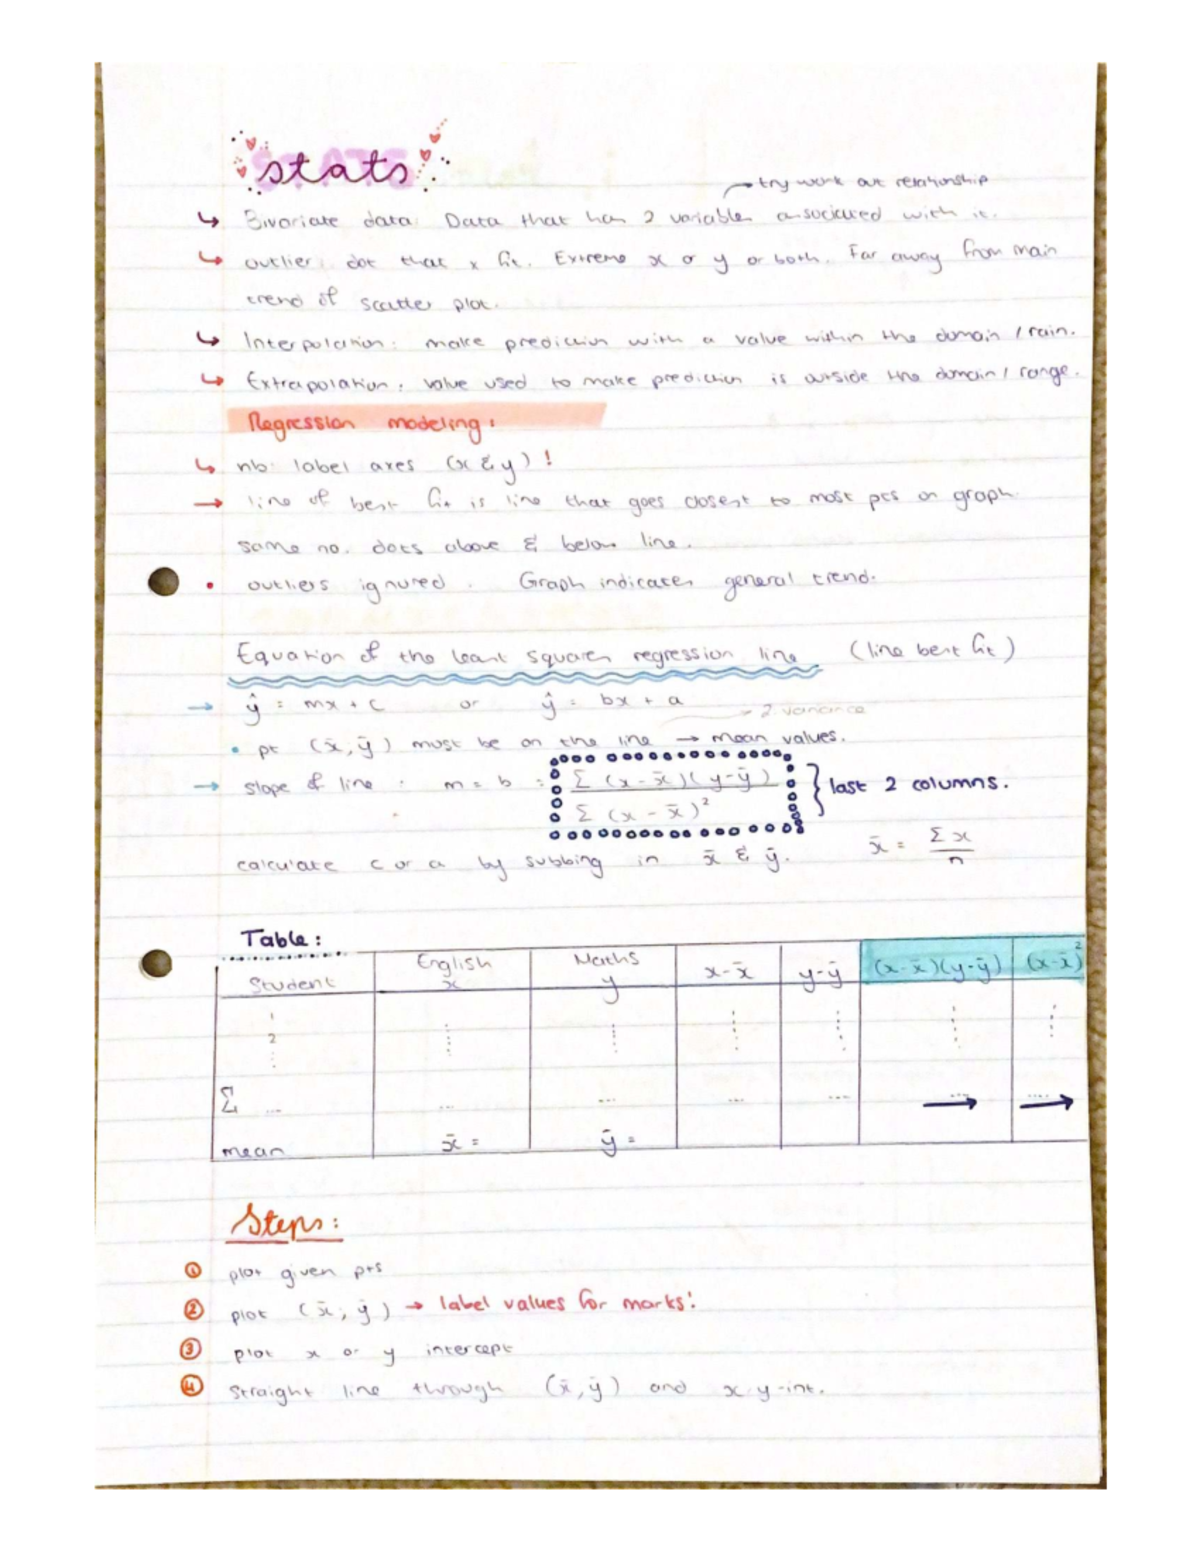 stats
try work out relationship
↳ Bivariate data: Data that has 2 variables associated with it.
↳ outlier: dot that x fit. Extreme x or y or both. Far away from main
trend of scatter plot.
↳ Interpolation: make prediction with a value within the domain / rain.
↳ Extrapolation: value used to make prediction is outside the domain / range.
Regression modeling:
↳ nb: label axes (x & y) !
→ line of best fit is line that goes closest to most pts on graph
same no. dots above & below line.
• outliers ignored. Graph indicates general trend.
Equation of the least squares regression line (line best fit)
→ ŷ = mx + c or ŷ = bx + a
→ 2 variance
• pt (x̄, ȳ) must be on the line → mean values.
→ slope of line: m = b = Σ (x - x̄)(y - ȳ) / Σ (x - x̄)² } last 2 columns.
calculate c or a by subbing in x̄ & ȳ. x̄ = Σx / n
Table:
Student English x Maths y x-x̄ y-ȳ (x-x̄)(y-ȳ) (x-x̄)²
1
2
Σ ... ... ... ... ... ... ...
mean x̄ = ȳ =
Steps:
① plot given pts
② plot (x̄; ȳ) → label values for marks!
③ plot x or y intercept
④ straight line through (x̄, ȳ) and x y-int.